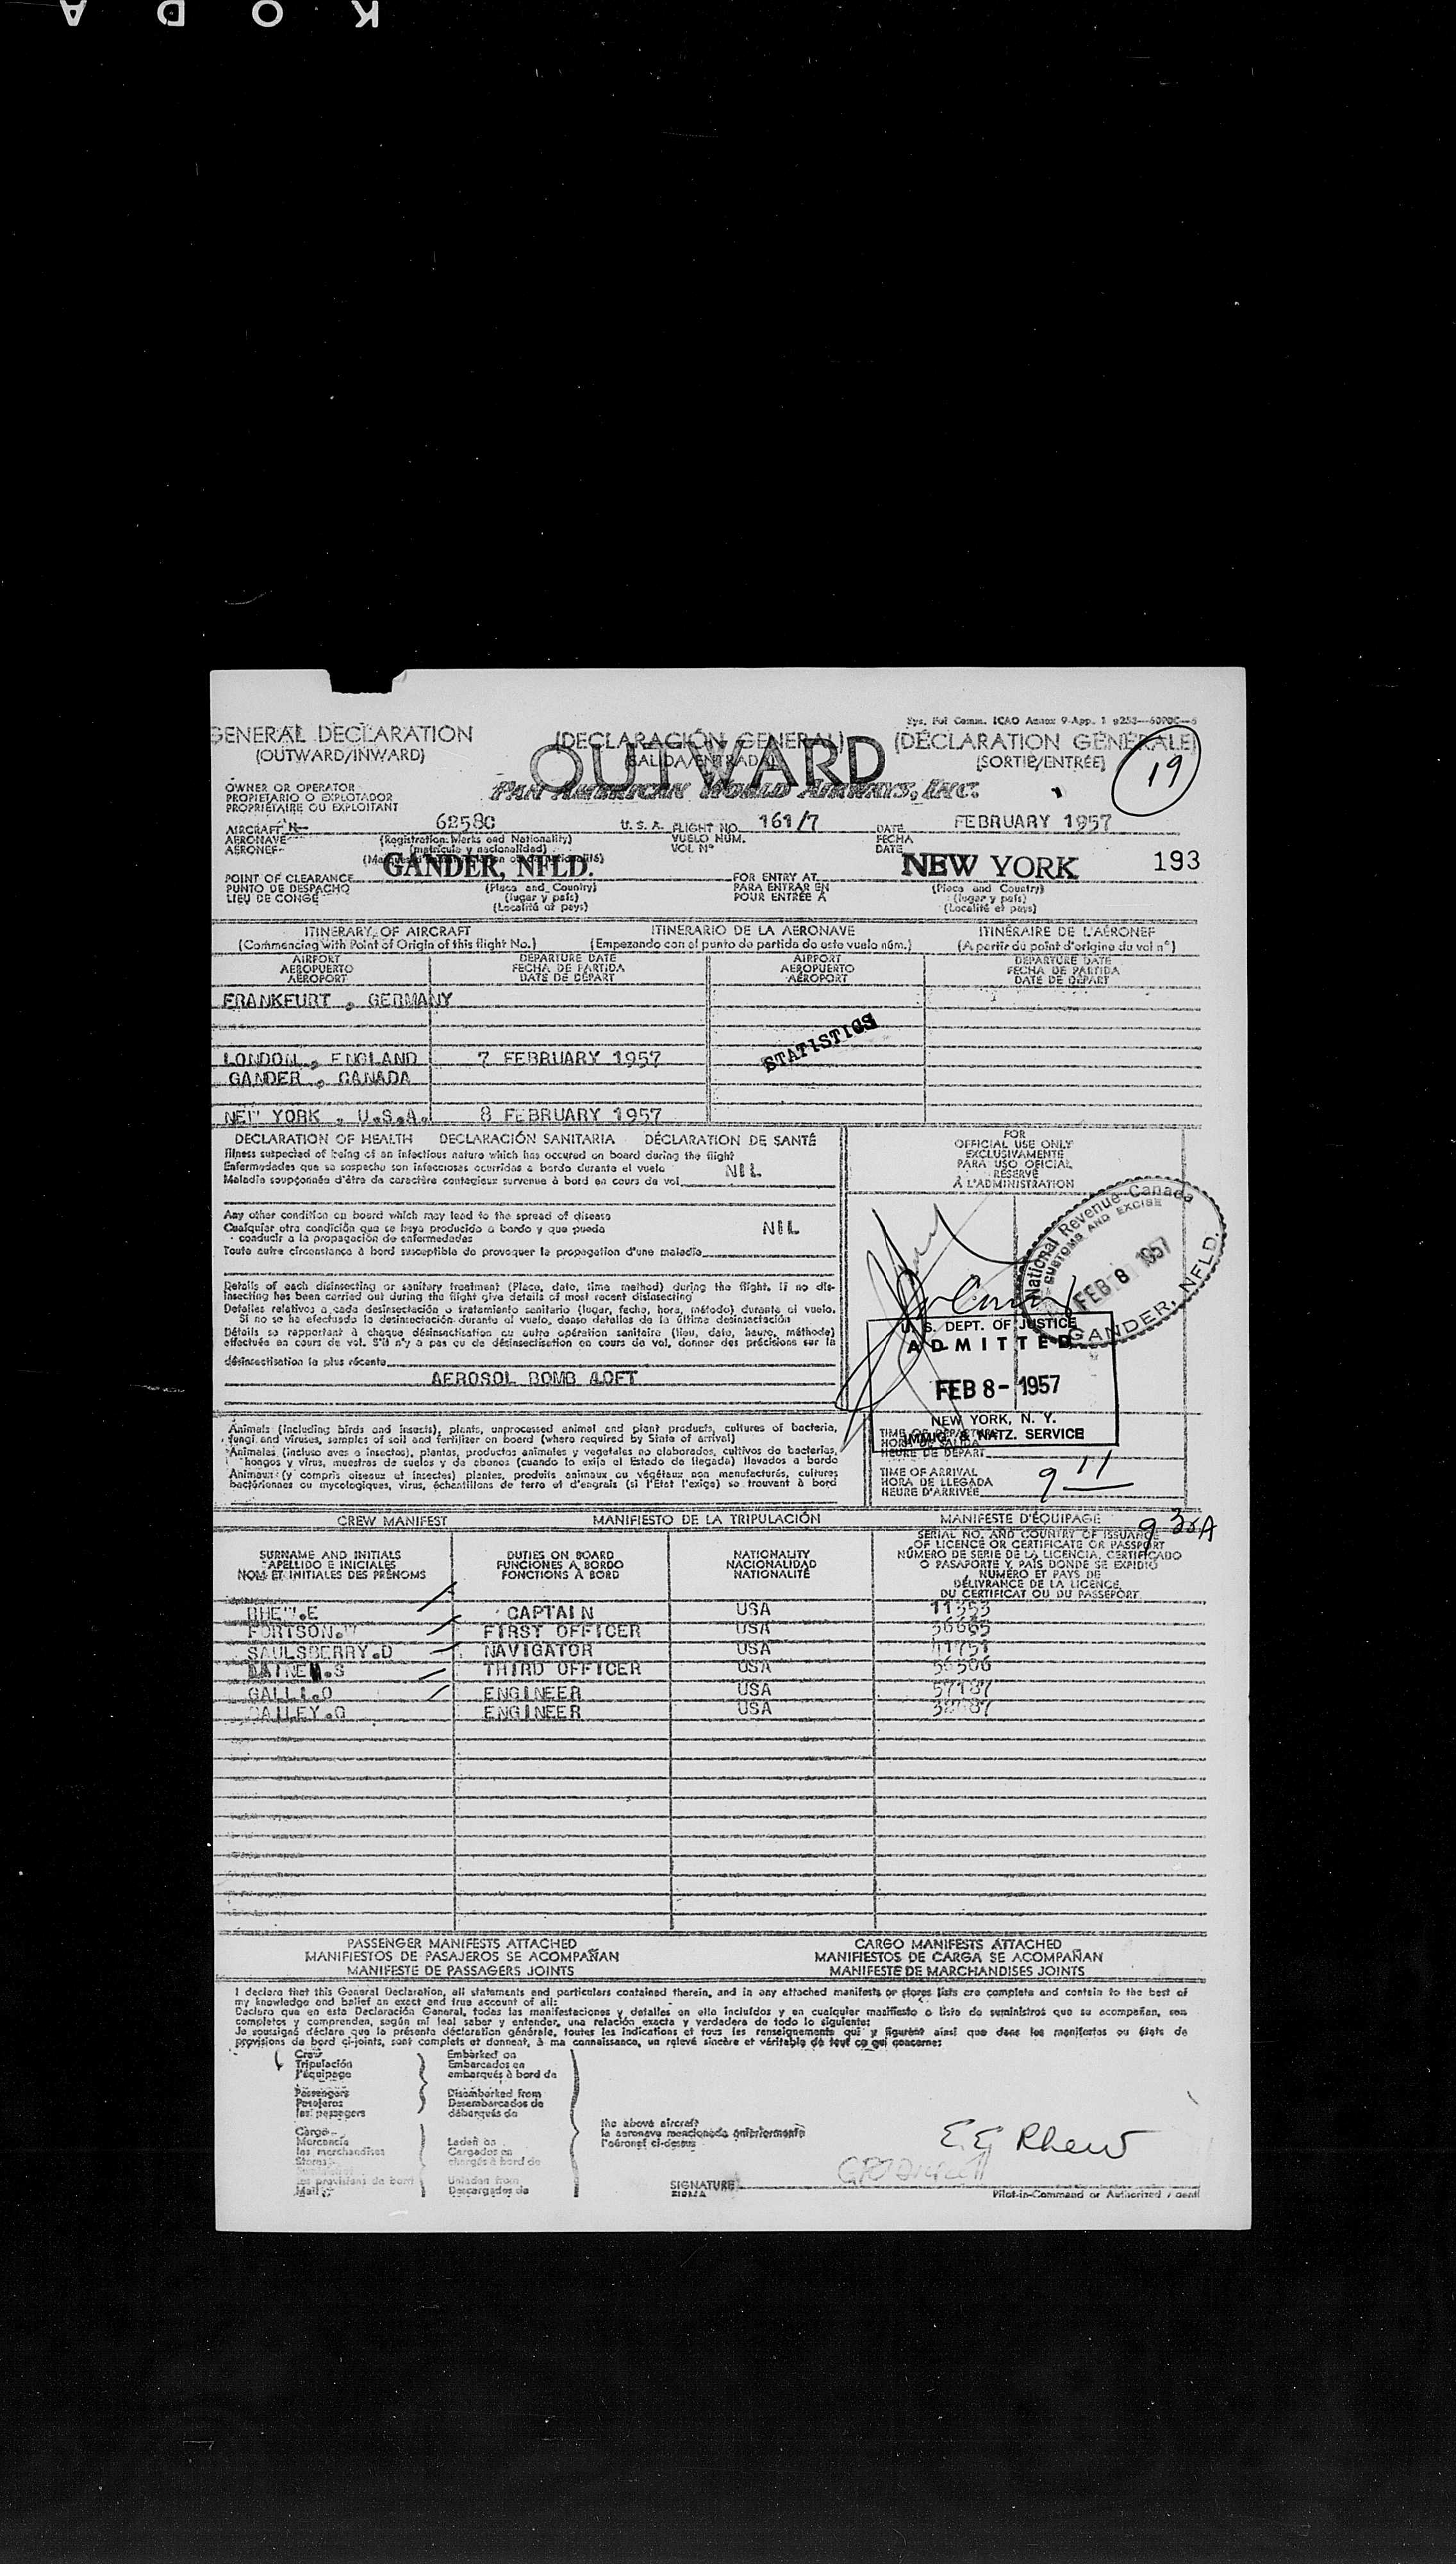 KODA
Sys. Fol Comm. ICAO Annex 9-App. 1
GENERAL DECLARATION (DECLARACIÓN GENERAL) (DÉCLARATION GÉNÉRALE)
(OUTWARD/INWARD) (SALIDA/ENTRADA) (SORTIE/ENTRÉE)
OUTWARD
19
OWNER OR OPERATOR
PROPIETARIO O EXPLOTADOR
PROPRIÉTAIRE OU EXPLOITANT
PAN AMERICAN WORLD AIRWAYS, INC.
AIRCRAFT N- 62580 U. S. A. FLIGHT NO. 161/7 DATE FEBRUARY 1957
AERONAVE (Registration Marks and Nationality) VUELO NÚM. FECHA
AÉRONEF (matrícula y nacionalidad) VOL Nº DATE
GANDER, NFLD. NEW YORK 193
POINT OF CLEARANCE (Place and Country) FOR ENTRY AT (Place and Country)
PUNTO DE DESPACHO (lugar y país) PARA ENTRAR EN (lugar y país)
LIEU DE CONGÉ (Localité et pays) POUR ENTRÉE À (Localité et pays)
ITINERARY OF AIRCRAFT ITINERARIO DE LA AERONAVE ITINÉRAIRE DE L'AÉRONEF
(Commencing with Point of Origin of this flight No.) (Empezando con el punto de partida de este vuelo núm.) (A partir du point d'origine du vol nº)
AIRPORT DEPARTURE DATE AIRPORT DEPARTURE DATE
AEROPUERTO FECHA DE PARTIDA AEROPUERTO FECHA DE PARTIDA
AÉROPORT DATE DE DÉPART AÉROPORT DATE DE DÉPART
FRANKFURT , GERMANY
STATISTICS
LONDON , ENGLAND 7 FEBRUARY 1957
GANDER , CANADA
NEW YORK , U.S.A. 8 FEBRUARY 1957
DECLARATION OF HEALTH DECLARACIÓN SANITARIA DÉCLARATION DE SANTÉ
Illness suspected of being of an infectious nature which has occured on board during the flight
Enfermedades que se sospecha son infecciosas ocurridas a bordo durante el vuelo NIL
Maladie soupçonnée d'être de caractère contagieux survenue à bord en cours de vol
Any other condition on board which may lead to the spread of disease
Cualquier otra condición que se haya producido a bordo y que pueda NIL
conducir a la propagación de enfermedades
Toute autre circonstance à bord susceptible de provoquer la propagation d'une maladie
Details of each disinsecting or sanitary treatment (Place, date, time method) during the flight. If no dis-
insecting has been carried out during the flight give details of most recent disinsecting
Detalles relativos a cada desinsectación o tratamiento sanitario (lugar, fecha, hora, método) durante el vuelo.
Si no se ha efectuado la desinsectación durante el vuelo, dense detalles de la última desinsectación
Détails se rapportant à chaque désinsectisation ou autre opération sanitaire (lieu, date, heure, méthode)
effectuée en cours de vol. S'il n'y a pas eu de désinsectisation en cours de vol, donner des précisions sur la
désinsectisation la plus récente
AEROSOL BOMB ALOFT
FOR
OFFICIAL USE ONLY
EXCLUSIVAMENTE
PARA USO OFICIAL
RÉSERVÉ
À L'ADMINISTRATION
National Revenue Canada
CUSTOMS AND EXCISE
FEB 8 1957
GANDER, NFLD.
U. S. DEPT. OF JUSTICE
ADMITTED
FEB 8 - 1957
NEW YORK, N. Y.
IMMIG. & NATZ. SERVICE
Animals (including birds and insects), plants, unprocessed animal and plant products, cultures of bacteria,
fungi and viruses, samples of soil and fertilizer on board (where required by State of arrival)
Animales (incluso aves e insectos), plantas, productos animales y vegetales no elaborados, cultivos de bacterias,
hongos y virus, muestras de suelos y de abonos (cuando lo exija el Estado de llegada) llevados a bordo
Animaux (y compris oiseaux et insectes) plantes, produits animaux ou végétaux non manufacturés, cultures
bactériennes ou mycologiques, virus, échantillons de terre et d'engrais (si l'État l'exige) se trouvant à bord
HEURE DE DÉPART
TIME OF ARRIVAL
HORA DE LLEGADA 9 11
HEURE D'ARRIVÉE
CREW MANIFEST MANIFIESTO DE LA TRIPULACIÓN MANIFESTE D'ÉQUIPAGE
SURNAME AND INITIALS DUTIES ON BOARD NATIONALITY
APELLIDO E INICIALES FUNCIONES A BORDO NACIONALIDAD
NOM ET INITIALES DES PRÉNOMS FONCTIONS À BORD NATIONALITÉ
SERIAL NO. AND COUNTRY OF ISSUANCE
OF LICENCE OR CERTIFICATE OR PASSPORT
NÚMERO DE SERIE DE LA LICENCIA, CERTIFICADO
O PASAPORTE Y PAÍS DONDE SE EXPIDIÓ
NUMÉRO ET PAYS DE
DÉLIVRANCE DE LA LICENCE,
DU CERTIFICAT OU DU PASSEPORT
RHEW.E CAPTAIN USA 11353
FORTSON. FIRST OFFICER USA 36665
SAULSBERRY.D NAVIGATOR USA 41751
THIRD OFFICER USA 56506
GALLI.O ENGINEER USA 57187
BAILEY.G ENGINEER USA
PASSENGER MANIFESTS ATTACHED CARGO MANIFESTS ATTACHED
MANIFIESTOS DE PASAJEROS SE ACOMPAÑAN MANIFIESTOS DE CARGA SE ACOMPAÑAN
MANIFESTE DE PASSAGERS JOINTS MANIFESTE DE MARCHANDISES JOINTS
I declare that this General Declaration, all statements and particulars contained therein, and in any attached manifests or stores lists are complete and contain to the best of
my knowledge and belief an exact and true account of all:
Declaro que en esta Declaración General, todas las manifestaciones y detalles en ella incluídos y en cualquier manifiesto o lista de suministros que se acompañen, son
completos y comprenden, según mi leal saber y entender, una relación exacta y verdadera de todo lo siguiente:
Je soussigné déclare que la présente déclaration générale, toutes les indications et tous les renseignements qui y figurent ainsi que dans les manifestes ou états de
provisions de bord ci-joints, sont complets et donnent, à ma connaissance, un relevé sincère et véritable de tout ce qui concerne:
Crew Embarked on
Tripulación Embarcados en
l'équipage embarqués à bord de
Passengers Disembarked from
Pasajeros Desembarcados de
les passagers débarqués de
Cargo
Mercancía Laden on
les marchandises Cargados en
Stores chargés à bord de
les provisions de bord Unladen from
Mail Descargados de
the above aircraft
la aeronave mencionada anteriormente
l'aéronef ci-dessus
E.E. Rhew
SIGNATURE
FIRMA
Pilot-in-Command or Authorized Agent